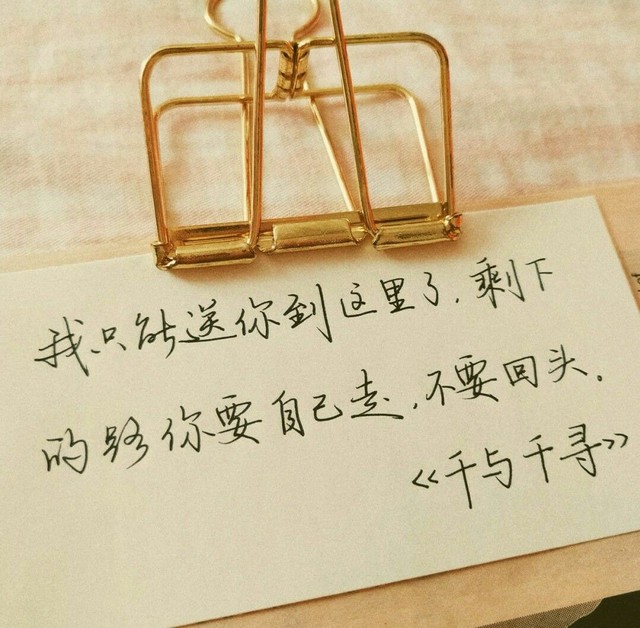 我只能送你到这里了,剩下
的路你要自己走,不要回头。
《千与千寻》